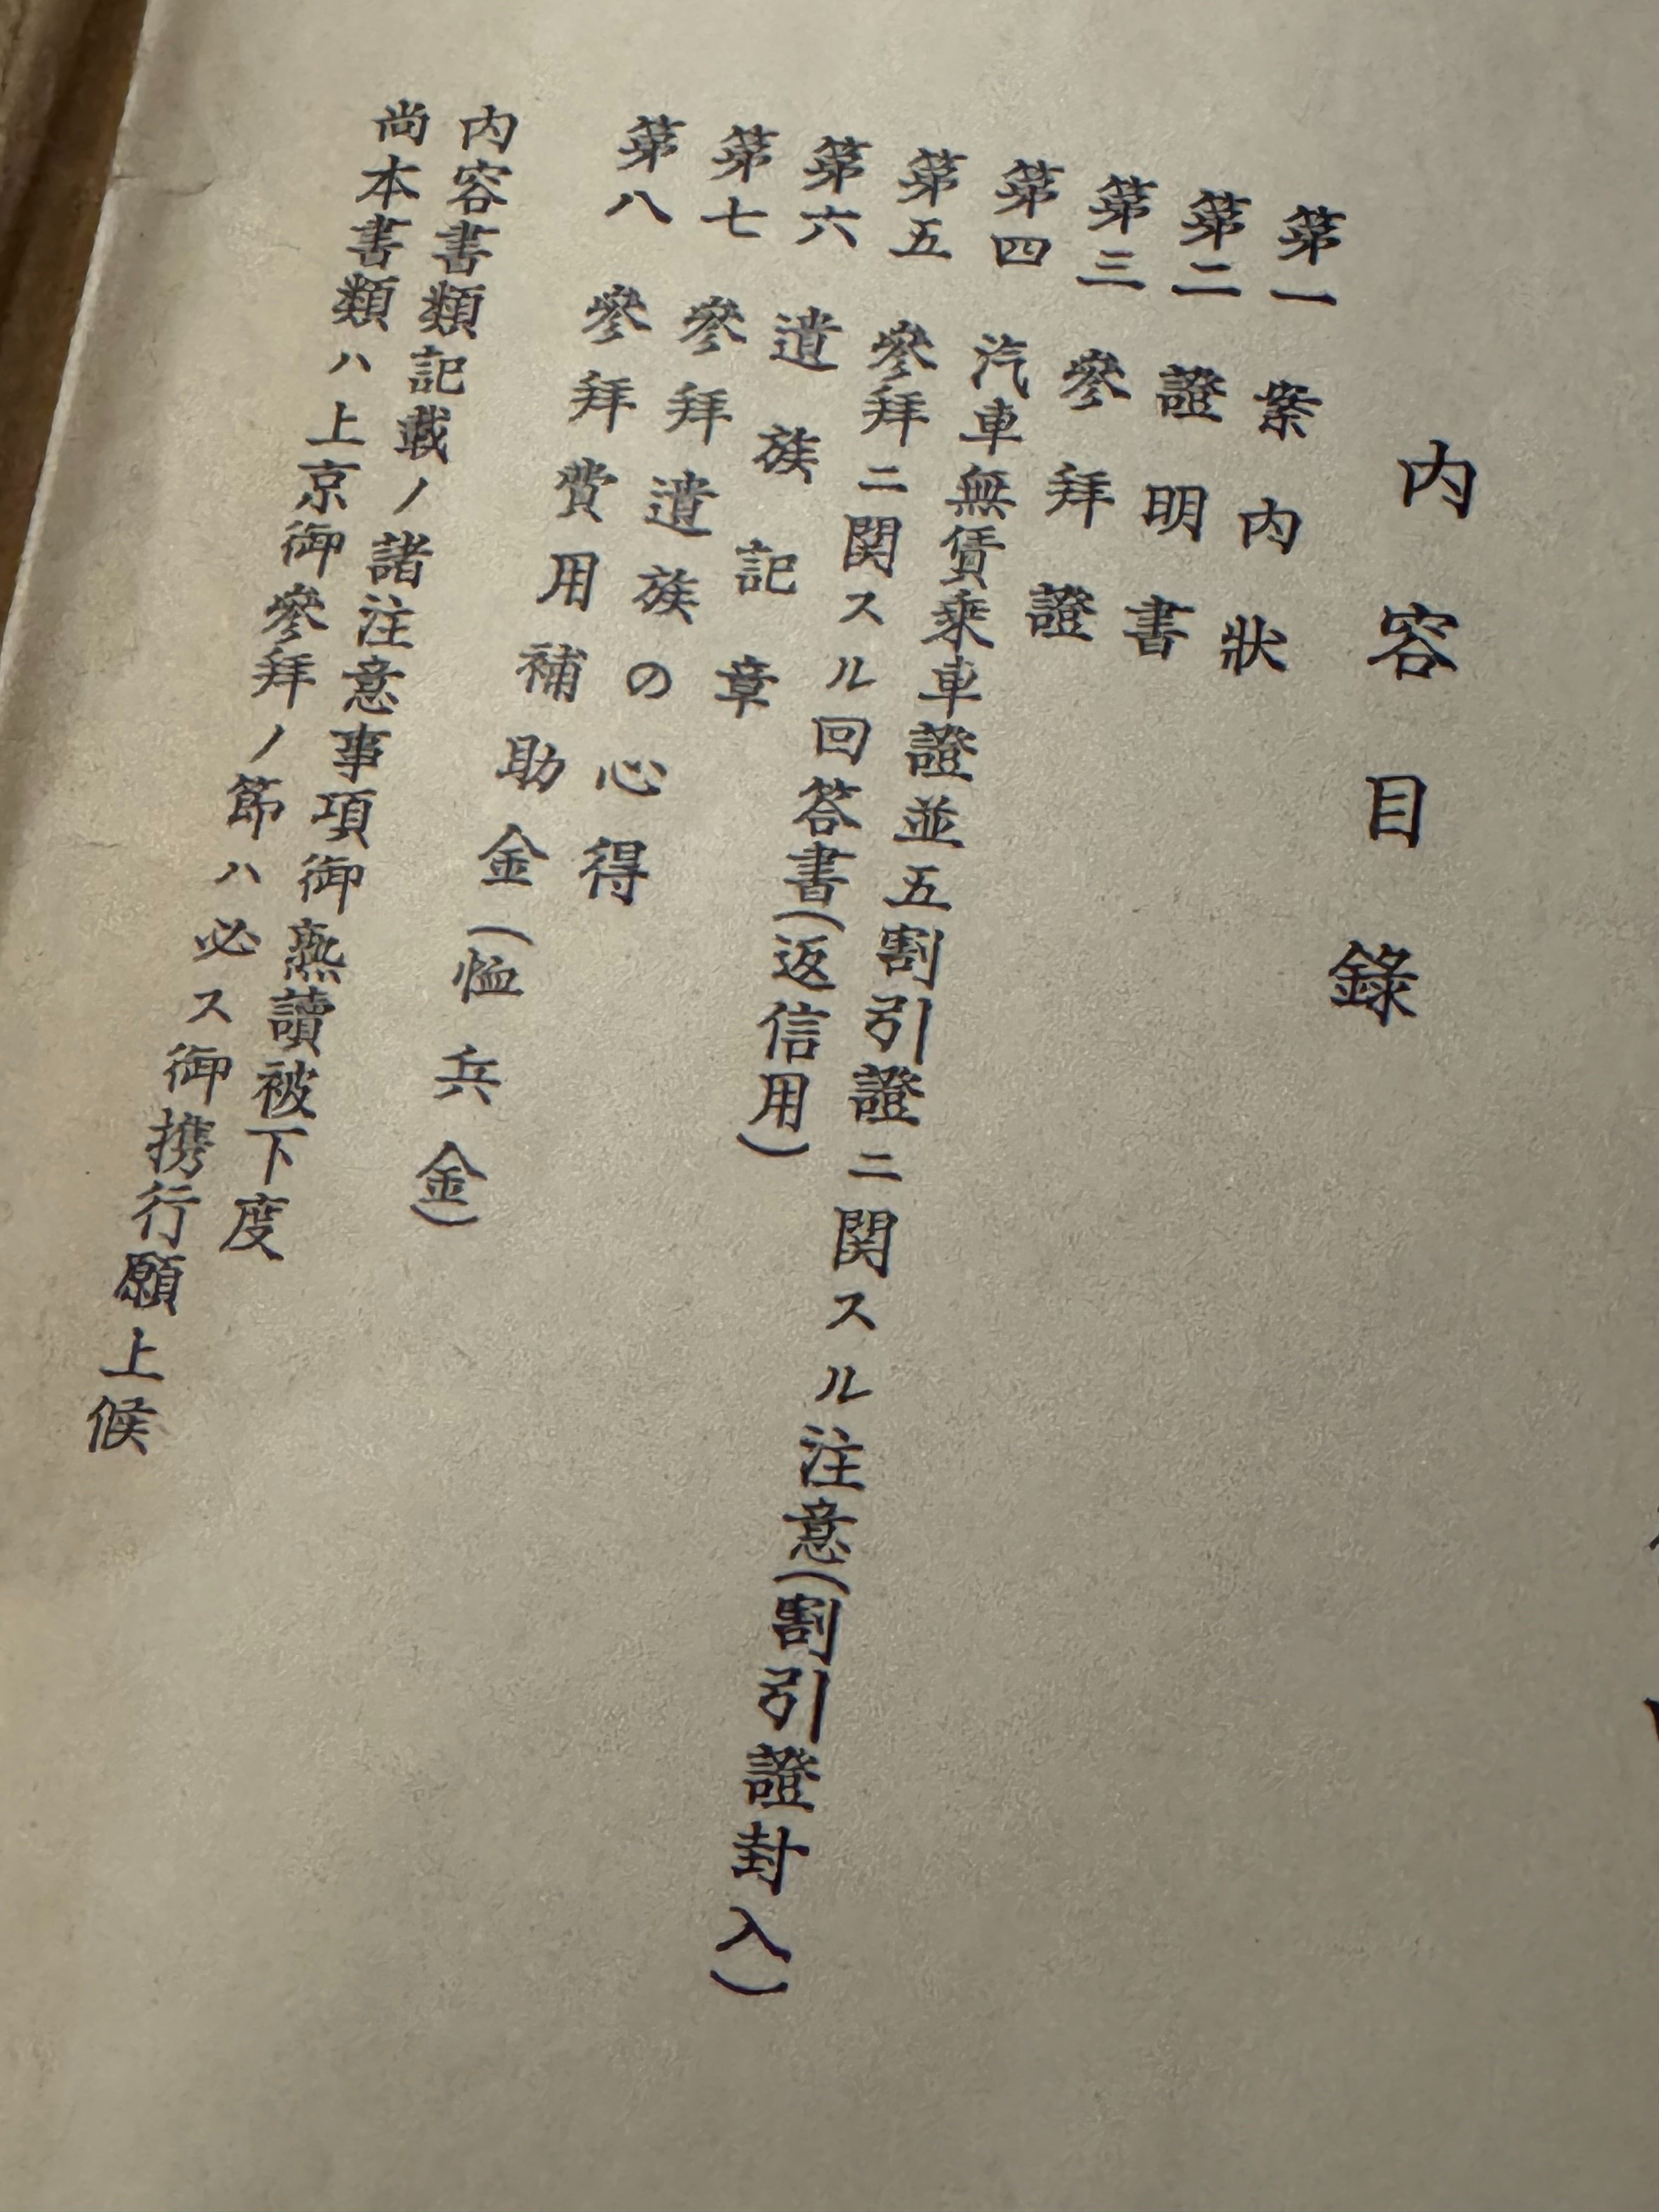 内容目錄
第一 案内狀
第二 證明書
第三 參拜證
第四 汽車無賃乘車證並五割引證ニ関スル注意(割引證封入)
第五 參拜ニ関スル回答書(返信用)
第六 遺族記章
第七 參拜遺族の心得
第八 參拜費用補助金(恤兵金)
内容書類記載ノ諸注意事項御熟讀被下度
尚本書類ハ上京御參拜ノ節ハ必ス御携行願上候